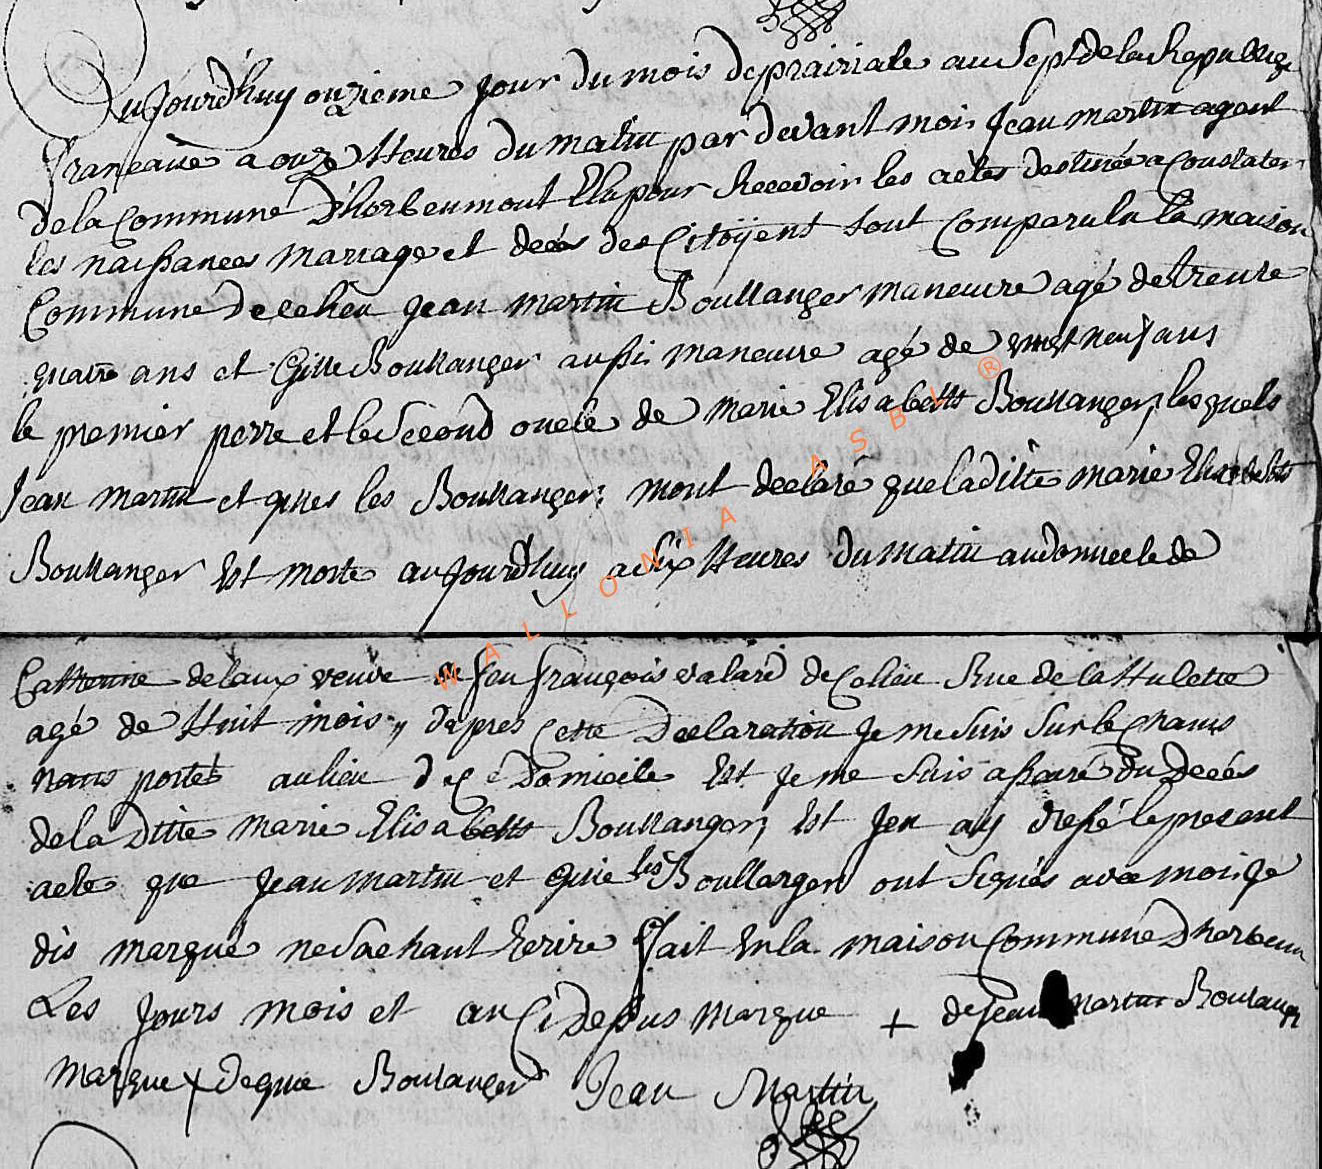 Aujourdhuy onzieme jour du mois de prairiale an Sept de la Republique
francaise a onze Heures du matin par devant moi Jean martin agent
de la commune D'herbeumont Elu pour Recevoir les actes destinée a Constater
les naissances mariage et decés des Citoÿent sont comparu la maison
Commune de ce lieu jean martin Boullanger maneuvre agé de trente
quatre ans et Gille Boullanger aussi maneuvre agé de vingt neuf ans
le premier perre et le Second oncle de marie Elisabette Boullanger, les quels
Jean martin et gilles les Boullanger, mont declaré que la ditte marie Elisabette
Boullanger Est morte aujourdhuy a six Heures du matin au domicile de
Catherine delaux veuve feu françois de Ce lieu Rue de la Hulette
agé de Huit mois, depres Cette Declaration Je me Suis Sur le Champ
portés au lieu de Ce Domicile Est Je me Suis assuré du Decés
de la Ditte marie Elisabette Boullanger, Est Jen ay dressé le present
acte que Jean martin et gille les Boullanger ont signés avec moi Je
dis marqué ne Sachant Ecrire fait En la maison Commune Dherbeum
Les Jours mois et an Ci dessus marque + de Jean martin Boulanger
marque x de gille Boulanger Jean Martin
WALLONIA ASBL ®